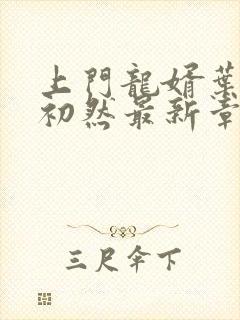 上門龍婿葉
初然最新章
三尺伞下